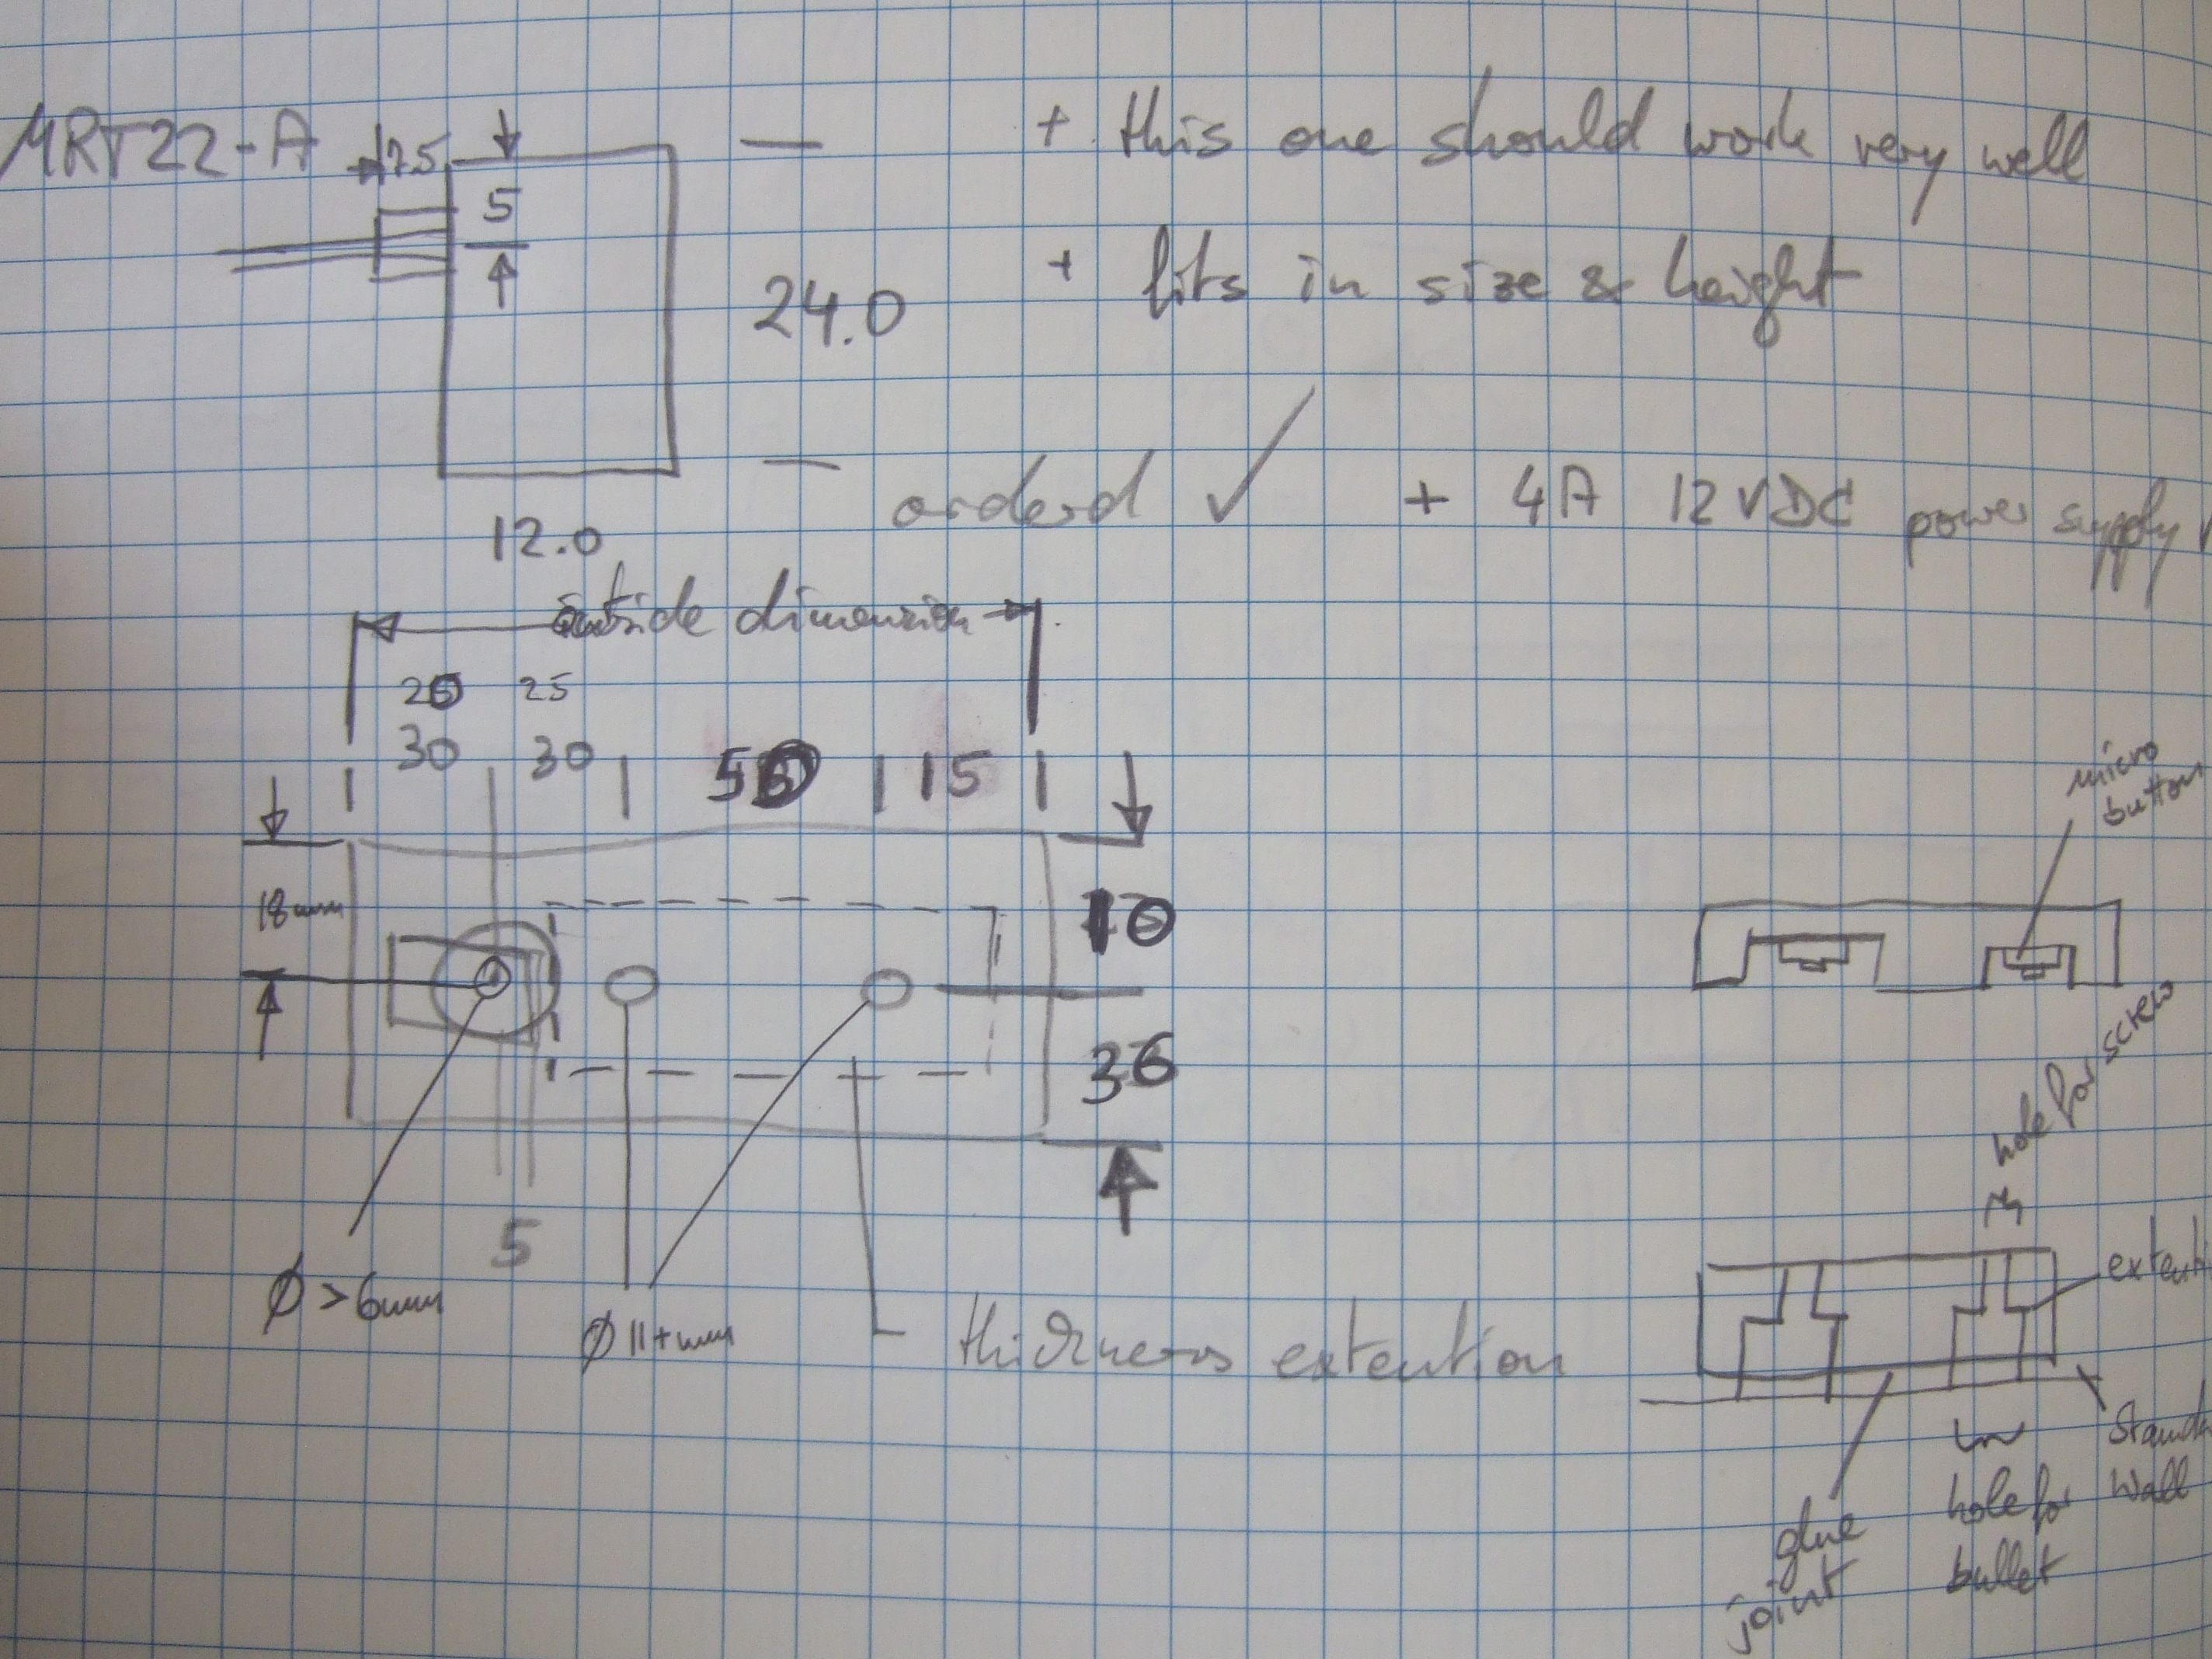 MRT22-A 7.5
+ this one should work very well
5
24.0
+ fits in size & height
orderd ✓ + 4A 12 VDC power supply
12.0
outside dimension
25
30 30 15
micro
button
18mm
10
36
hole for screw
5
Ø >6mm
Ø 11+mm
thickness extention
glue
joint
hole for
bullet
Wall